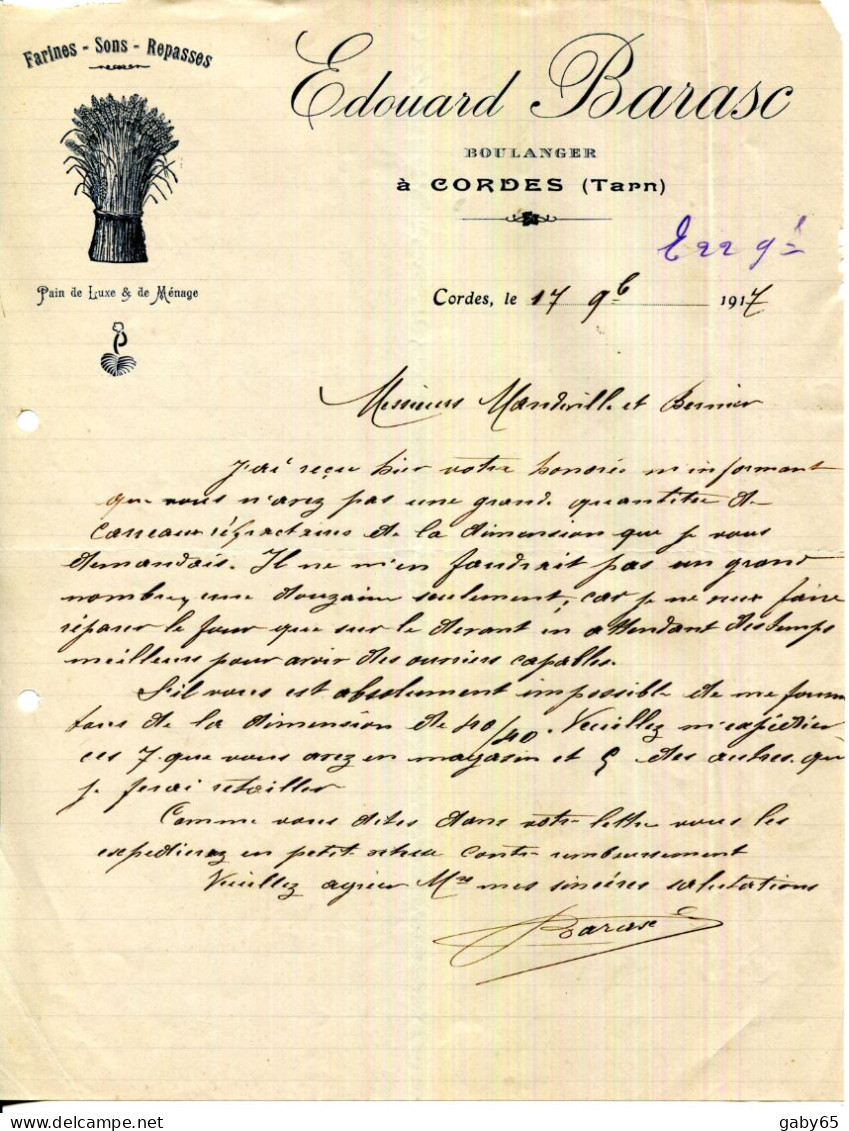 Farines - Sons - Repasses
Edouard Barasc
BOULANGER
à CORDES (Tarn)
Pain de Luxe & de Ménage
Cordes, le 17 9b 1917
Messieurs Mandeville et Bernier
J'ai reçu hier votre honorée m'informant
que vous n'avez pas une grande quantitée de
carreaux réfractaires de la dimension que je vous
demandais. Il ne m'en faudrait pas un grand
nombre, une douzaine seulement, car je ne veux faire
réparer le four que sur le devant en attendant des temps
meilleurs pour avoir des ouvriers capables.
S'il vous est absolument impossible de me fournir
tous de la dimension de 40/40. Veuillez m'expédier
ces 7 que vous avez en magasin et 5 des autres que
je ferai retailler
Comme vous dites dans votre lettre vous les
expedierez en petite vitesse contre remboursement
Veuillez agréer Mrs mes sincères salutations
Barasc
gaby65